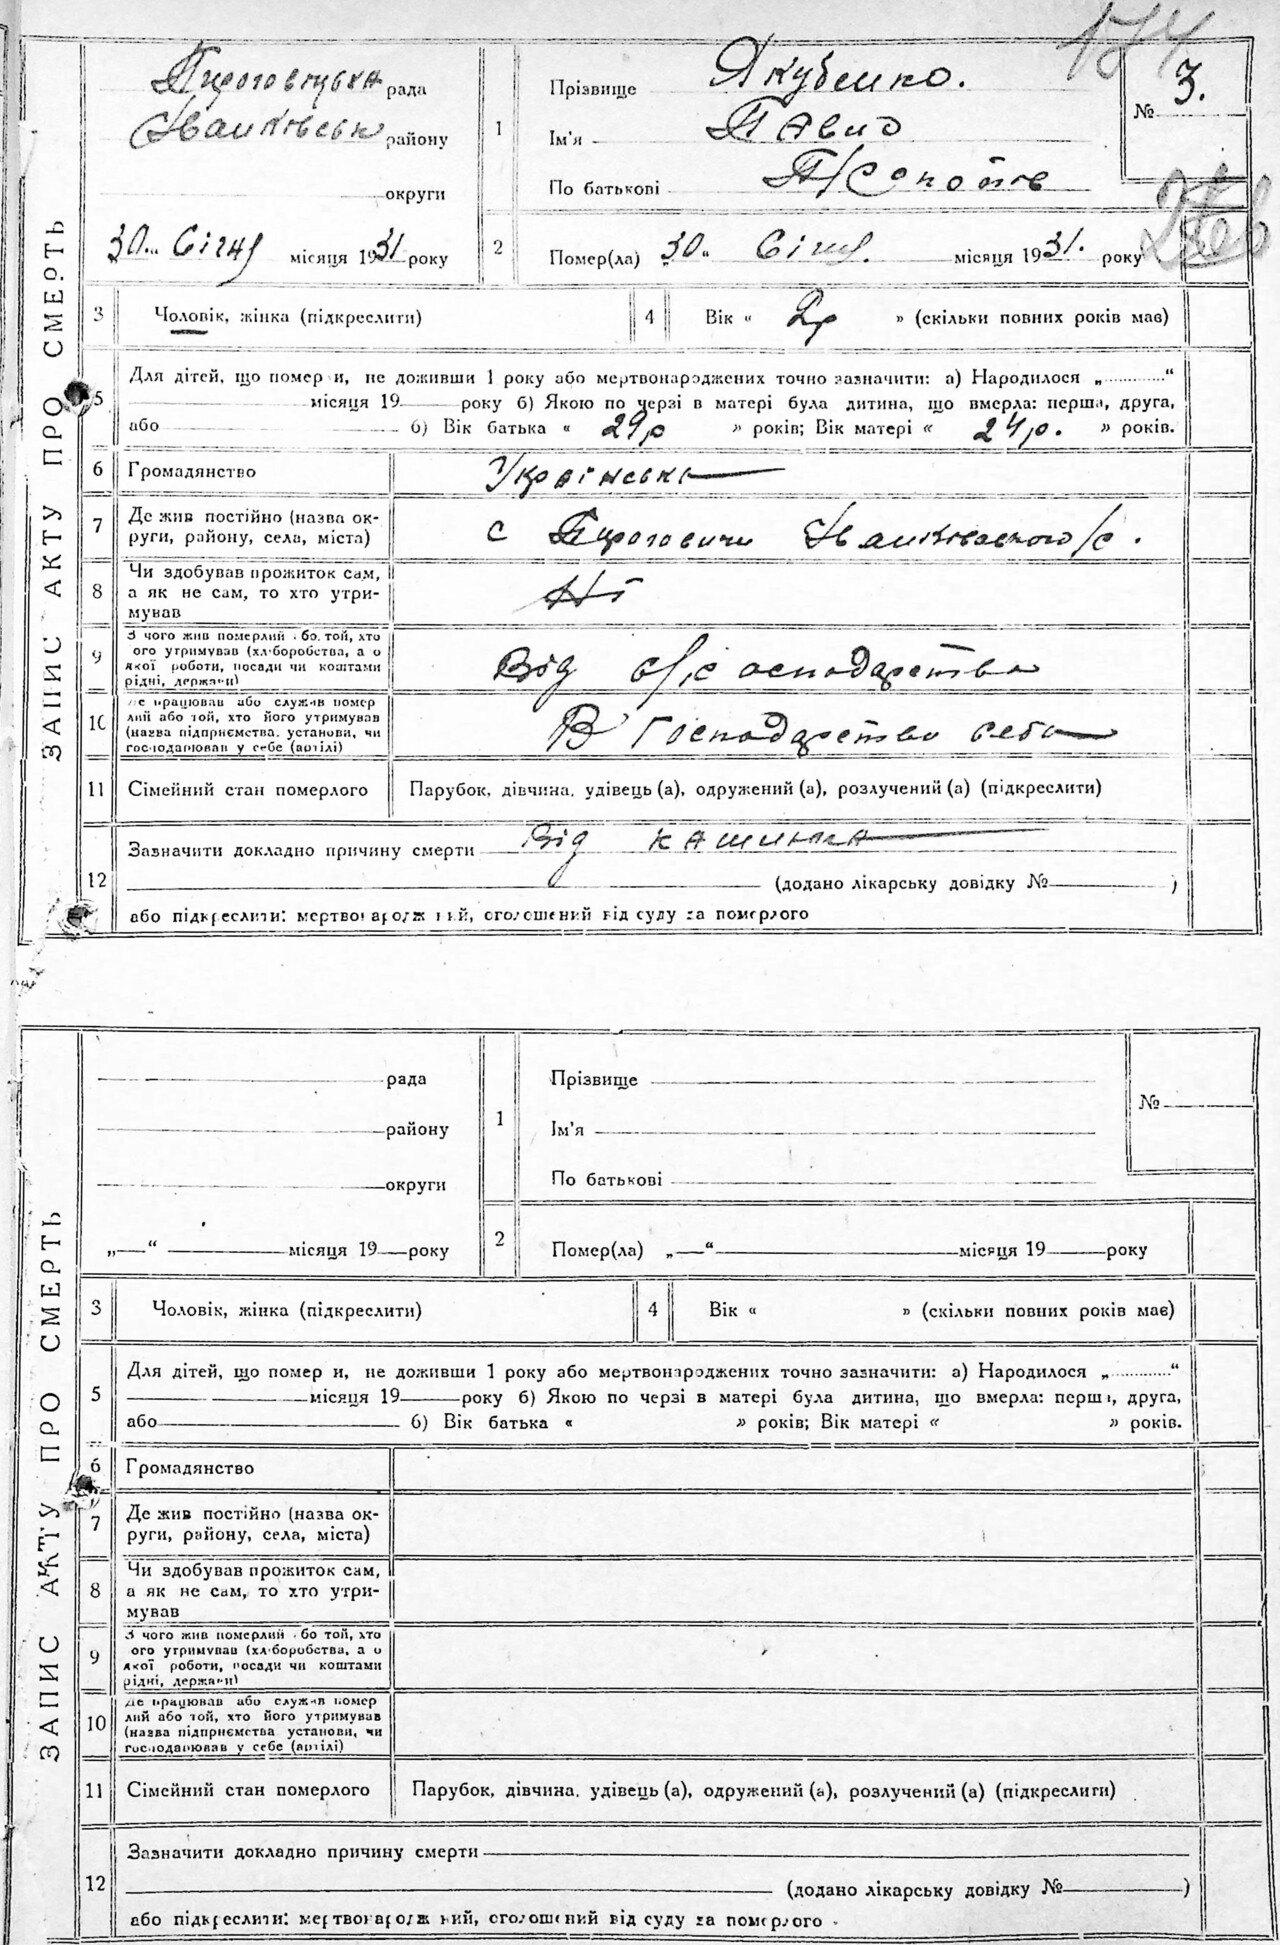 174
ЗАПИС АКТУ ПРО СМЕРТЬ
Пироговицька рада
Іванківськ району
округи
30 " Січня місяця 1931 року
1
Прізвище Якубенко.
Ім'я Павло
По батькові
№ 3.
2
Помер(ла) 30 " Січня. місяця 1931. року
3
Чоловік, жінка (підкреслити)
4
Вік « 2р » (скільки повних років має)
5
Для дітей, що помер и, не доживши 1 року або мертвонароджених точно зазначити: а) Народилося „ “
місяця 19 року б) Якою по черзі в матері була дитина, що вмерла: перша, друга,
або б) Вік батька « 29р » років; Вік матері « 24р. » років.
6
Громадянство
Українська
7
Де жив постійно (назва ок-
руги, району, села, міста)
с Пироговичи Іванківського р.
8
Чи здобував прожиток сам,
а як не сам, то хто утри-
мував
Ні
9
З чого жив померлий бо той, хто
ого утримував (хл боробства, а о
якої роботи, посади чи коштами
рідні, держави)
Від с/г осподарства
10
де працював або служив помер
лий або той, хто його утримував
(назва підприємства, установи, чи
господарював у себе (артілі)
В Господарстві себе
11
Сімейний стан померлого
Парубок, дівчина, удівець (а), одружений (а), розлучений (а) (підкреслити)
12
Зазначити докладно причину смерти Від кашлика
(додано лікарську довідку № )
або підкреслити: мертвонародж ний, оголошений від суду за померлого
ЗАПИС АКТУ ПРО СМЕРТЬ
рада
району
округи
„ “ місяця 19 року
1
Прізвище
Ім'я
По батькові
№
2
Помер(ла) „ “ місяця 19 року
3
Чоловік, жінка (підкреслити)
4
Вік « » (скільки повних років має)
5
Для дітей, що помер и, не доживши 1 року або мертвонароджених точно зазначити: а) Народилося „ “
місяця 19 року б) Якою по черзі в матері була дитина, що вмерла: перша, друга,
або б) Вік батька « » років; Вік матері « » років.
6
Громадянство
7
Де жив постійно (назва ок-
руги, району, села, міста)
8
Чи здобував прожиток сам,
а як не сам, то хто утри-
мував
9
З чого жив померлий бо той, хто
ого утримував (хл боробства, а о
якої роботи, посади чи коштами
рідні, держави)
10
де працював або служив помер
лий або той, хто його утримував
(назва підприємства установи, чи
господарював у себе (артілі)
11
Сімейний стан померлого
Парубок, дівчина, удівець (а), одружений (а), розлучений (а) (підкреслити)
12
Зазначити докладно причину смерти
(додано лікарську довідку № )
або підкреслити: мертвонародж ний, оголошений від суду за померлого